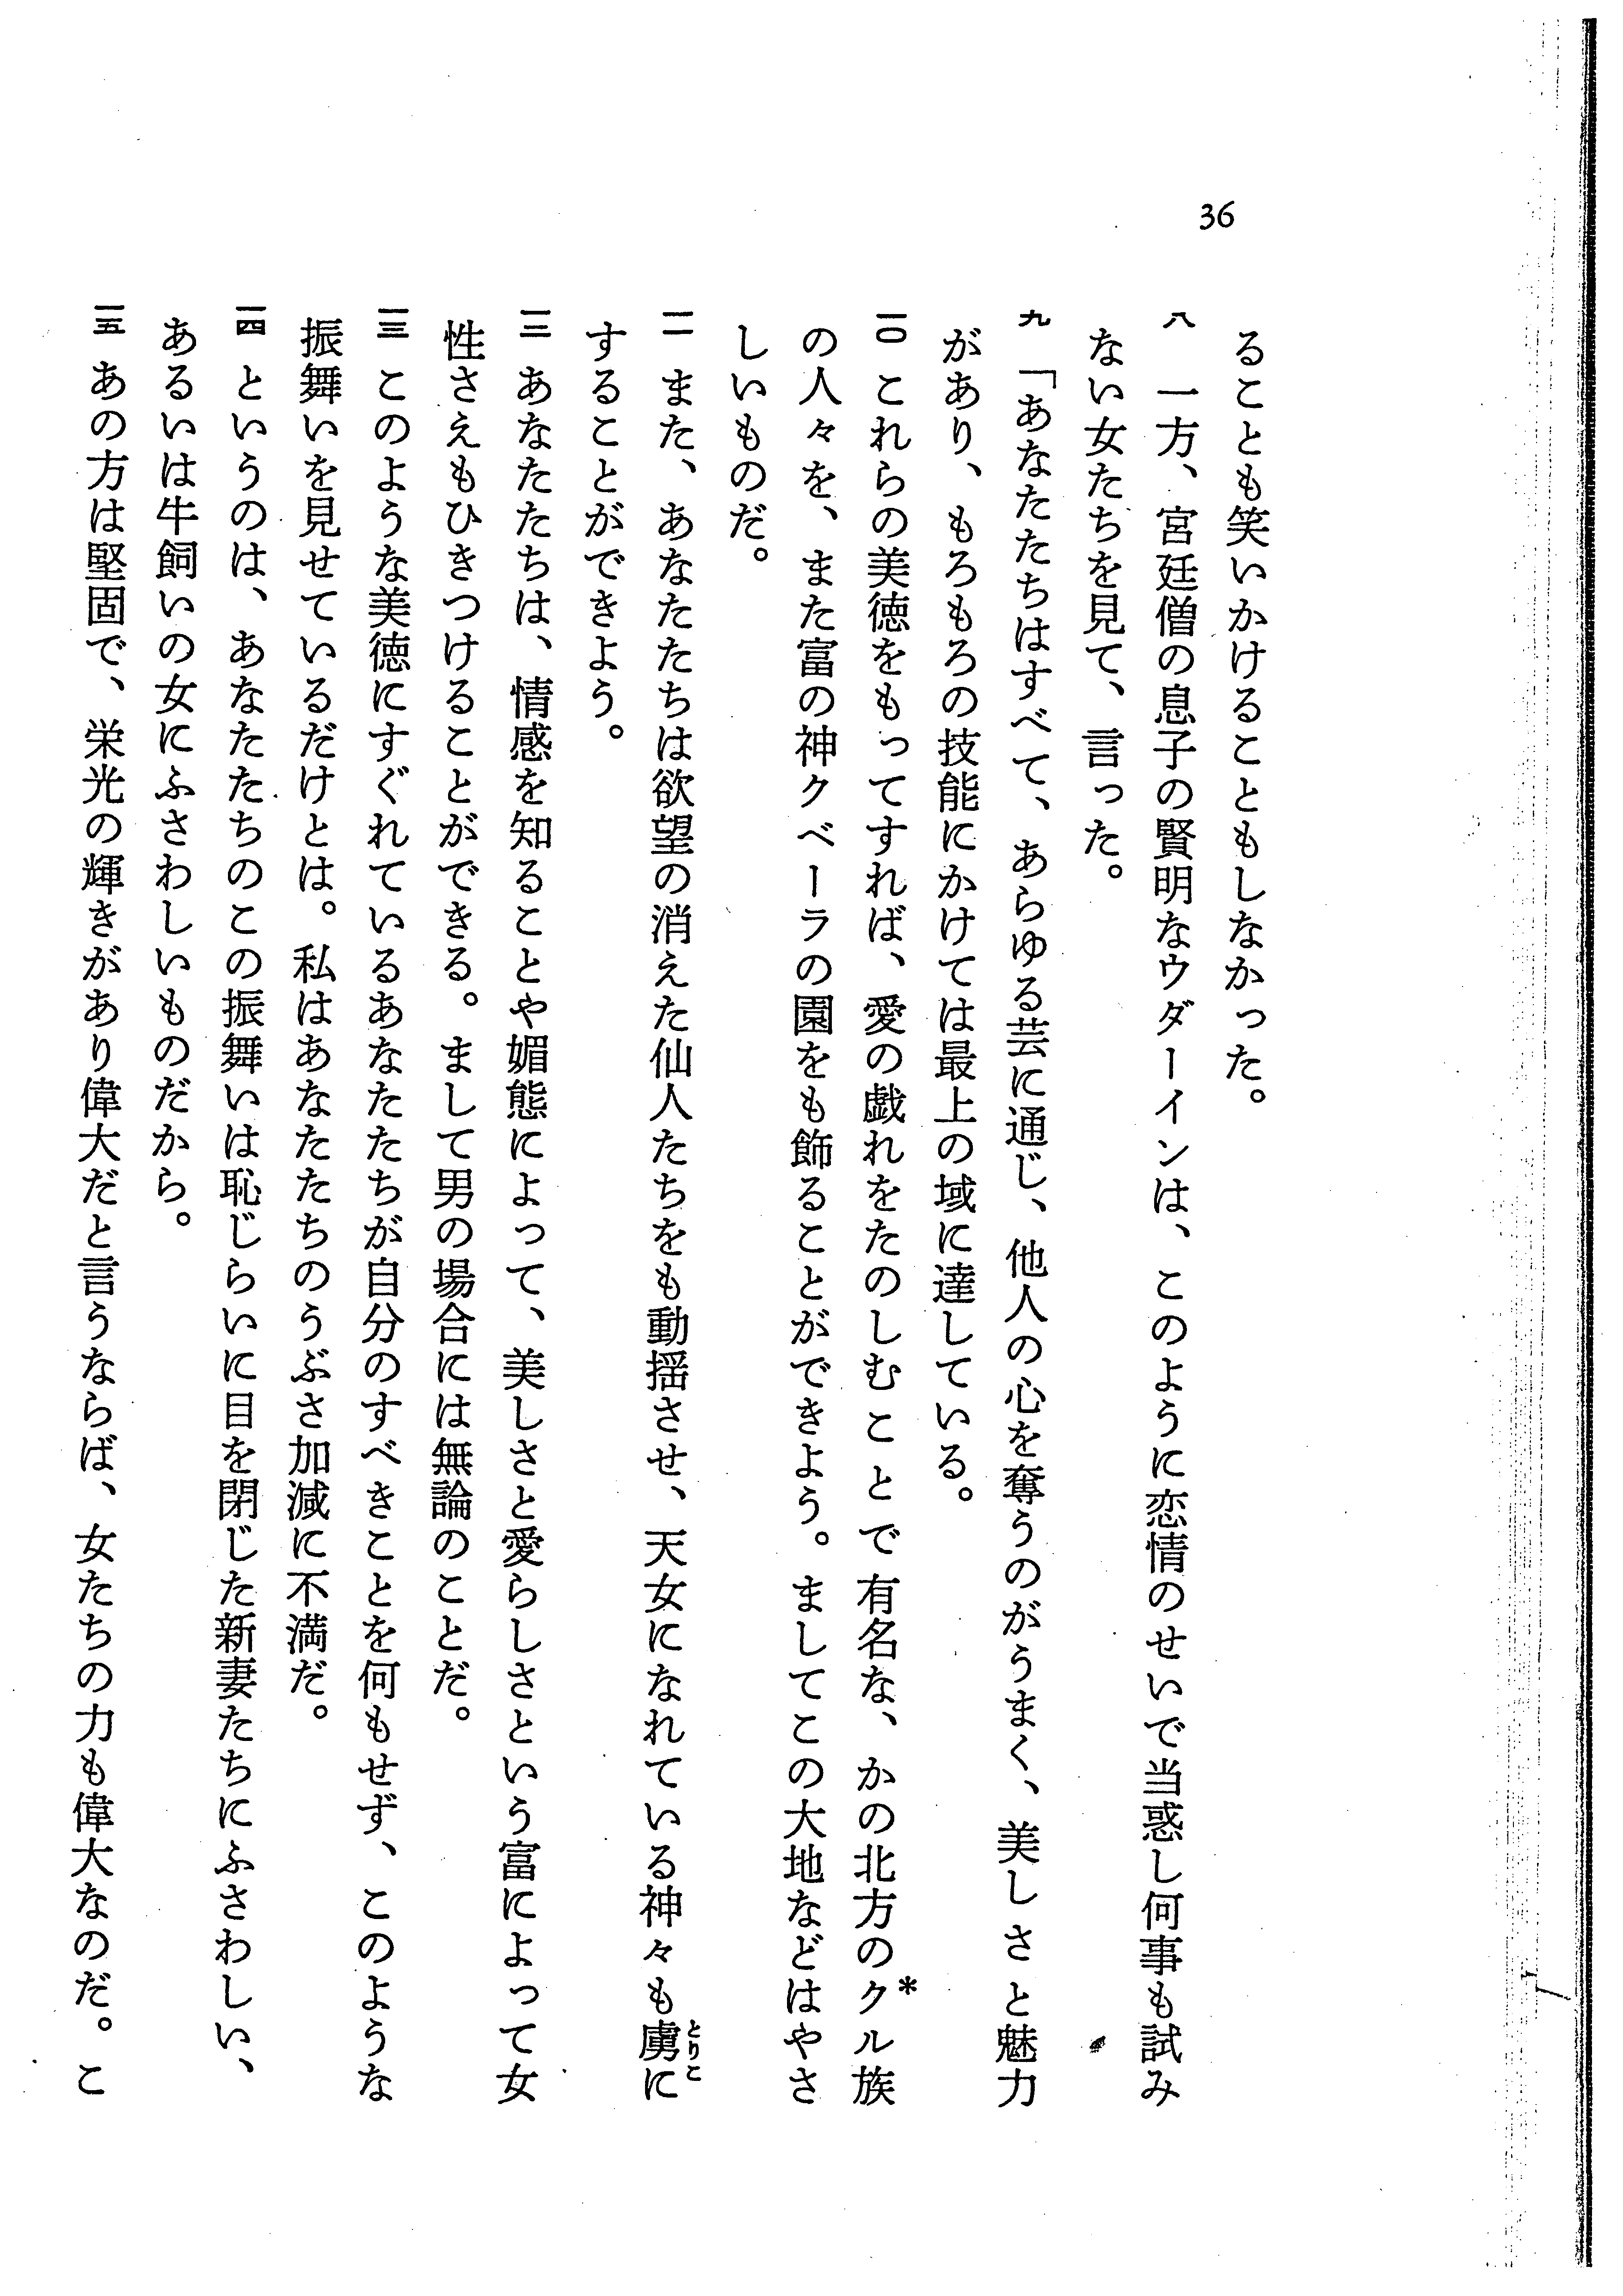 36
ることも笑いかけることもしなかった。
八　一方、宮廷僧の息子の賢明なウダーインは、このように恋情のせいで当惑し何事も試み
ない女たちを見て、言った。
九「あなたたちはすべて、あらゆる芸に通じ、他人の心を奪うのがうまく、美しさと魅力
があり、もろもろの技能にかけては最上の域に達している。
一〇　これらの美徳をもってすれば、愛の戯れをたのしむことで有名な、かの北方のクル族*
の人々を、また富の神クベーラの園をも飾ることができよう。ましてこの大地などはやさ
しいものだ。
一一　また、あなたたちは欲望の消えた仙人たちをも動揺させ、天女になれている神々も虜とりこに
することができよう。
一二　あなたたちは、情感を知ることや媚態によって、美しさと愛らしさという富によって女
性さえもひきつけることができる。まして男の場合には無論のことだ。
一三　このような美徳にすぐれているあなたたちが自分のすべきことを何もせず、このような
振舞いを見せているだけとは。私はあなたたちのうぶさ加減に不満だ。
一四　というのは、あなたたちのこの振舞いは恥じらいに目を閉じた新妻たちにふさわしい、
あるいは牛飼いの女にふさわしいものだから。
一五　あの方は堅固で、栄光の輝きがあり偉大だと言うならば、女たちの力も偉大なのだ。こ